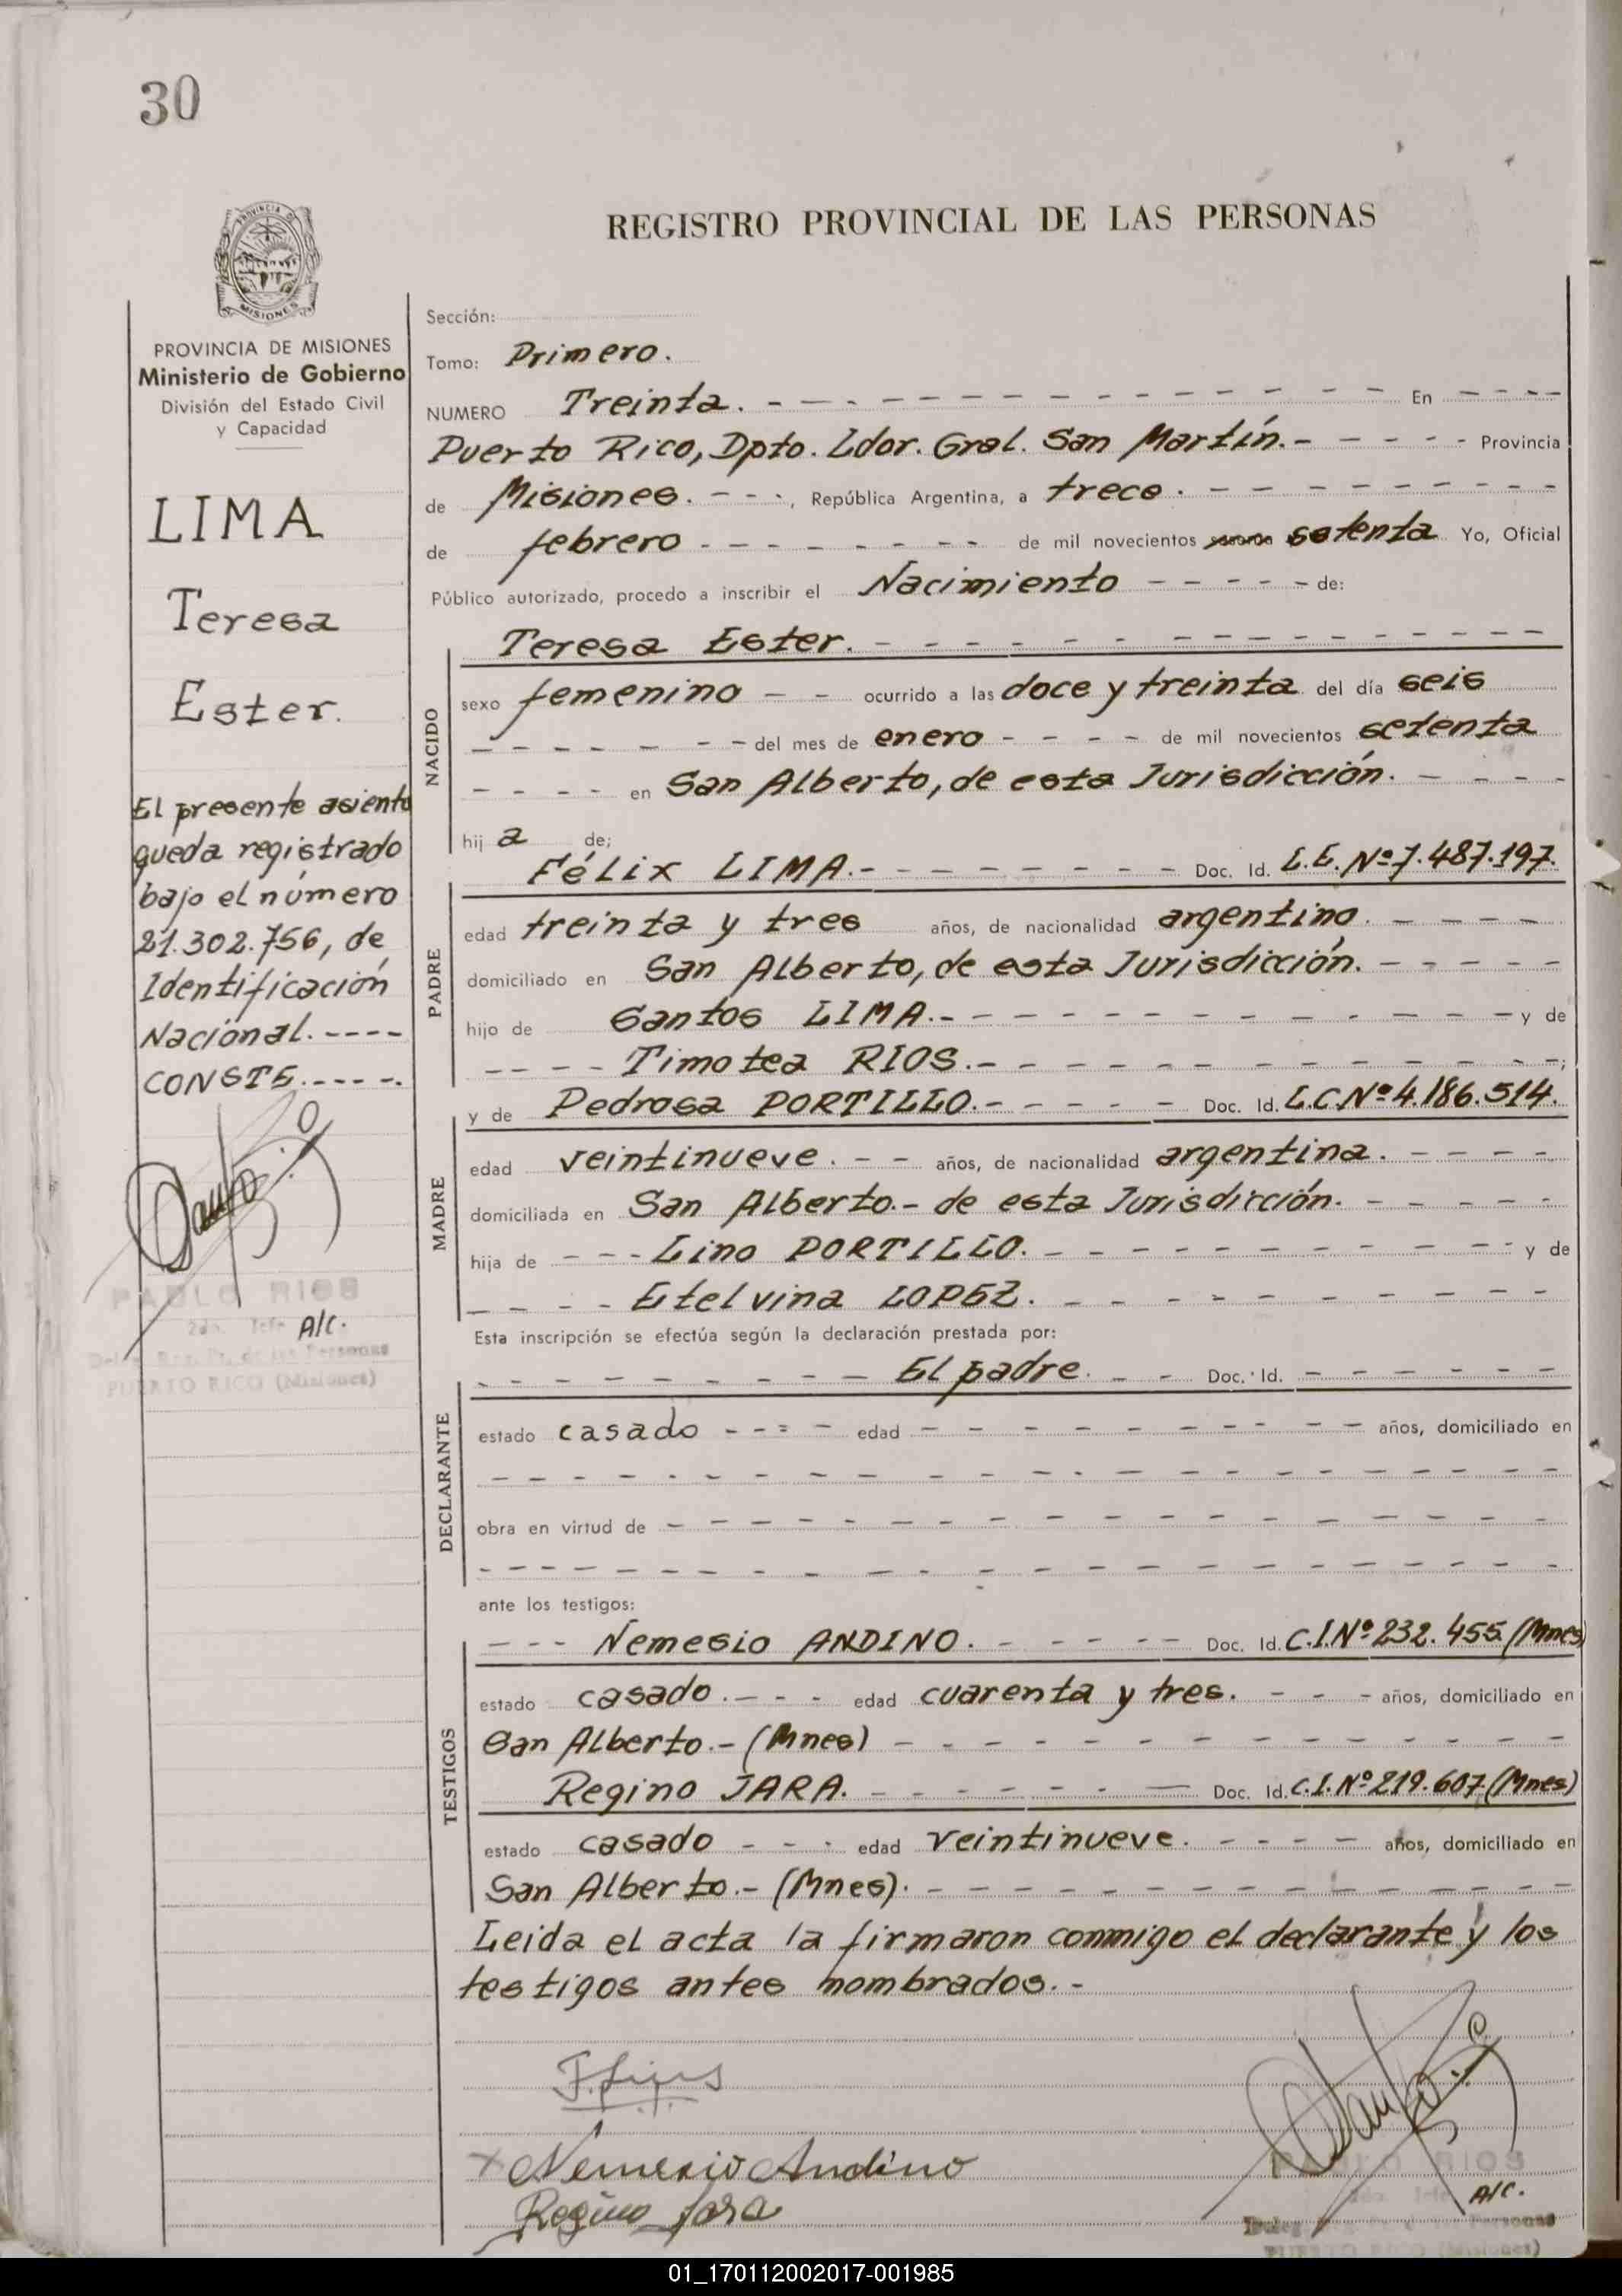 30
REGISTRO PROVINCIAL DE LAS PERSONAS
PROVINCIA DE MISIONES
Ministerio de Gobierno
División del Estado Civil
y Capacidad
LIMA
Teresa
Ester.
El presente asiento
queda registrado
bajo el número
21.302.756, de
Identificación
Nacional.----
CONSTE.----.
PABLO RIOS
2do. Jefe A/C.
Deleg. Reg. Pr. de las Personas
PUERTO RICO (Misiones)
Sección:
Tomo: Primero.
NUMERO Treinta. - - - En - - - -
Puerto Rico, Dpto. Ldor. Gral. San Martín. - - - - - Provincia
de Misiones. - - -, República Argentina, a trece. - - -
de febrero - - - de mil novecientos setenta Yo, Oficial
Público autorizado, procedo a inscribir el Nacimiento - - - - - de:
NACIDO
Teresa Ester. - - -
sexo femenino - - ocurrido a las doce y treinta del día seis
- - - del mes de enero - - - - de mil novecientos setenta
- - - - en San Alberto, de esta Jurisdicción. - - - -
hij a de;
PADRE
Félix LIMA. - - - Doc. Id. L.E. Nº 7.487.197.
edad treinta y tres años, de nacionalidad argentino. - - - -
domiciliado en San Alberto, de esta Jurisdicción. - - - - -
hijo de Santos LIMA. - - - y de
- - - - Timotea RIOS. - - - ;
MADRE
y de Pedrosa PORTILLO. - - - - - Doc. Id. L.C. Nº 4.186.514.
edad veintinueve. - - años, de nacionalidad argentina. - - - -
domiciliada en San Alberto.- de esta Jurisdicción. - - - - -
hija de - - - Lino PORTILLO. - - - y de
- - - - Etelvina LOPEZ. - - -
Esta inscripción se efectúa según la declaración prestada por:
DECLARANTE
- - - El padre. - - Doc. Id. - - - - - -
estado casado - - - - edad - - - años, domiciliado en
- - -
obra en virtud de - - -
- - -
ante los testigos:
TESTIGOS
- - - Nemesio ANDINO. - - - - - Doc. Id. C.I. Nº 232.455 (Mnes)
estado casado. - - - edad cuarenta y tres. - - - años, domiciliado en
San Alberto.- (Mnes) - - -
Regino JARA. - - - Doc. Id. C.I. Nº 219.607. (Mnes)
estado casado - - - edad veintinueve. - - - - años, domiciliado en
San Alberto.- (Mnes). - - -
Leida el acta la firmaron conmigo el declarante y los
testigos antes nombrados.-
Nemesio Andino
Regino Jara
PABLO RIOS
A/C.
PUERTO RICO (Misiones)
01_170112002017-001985